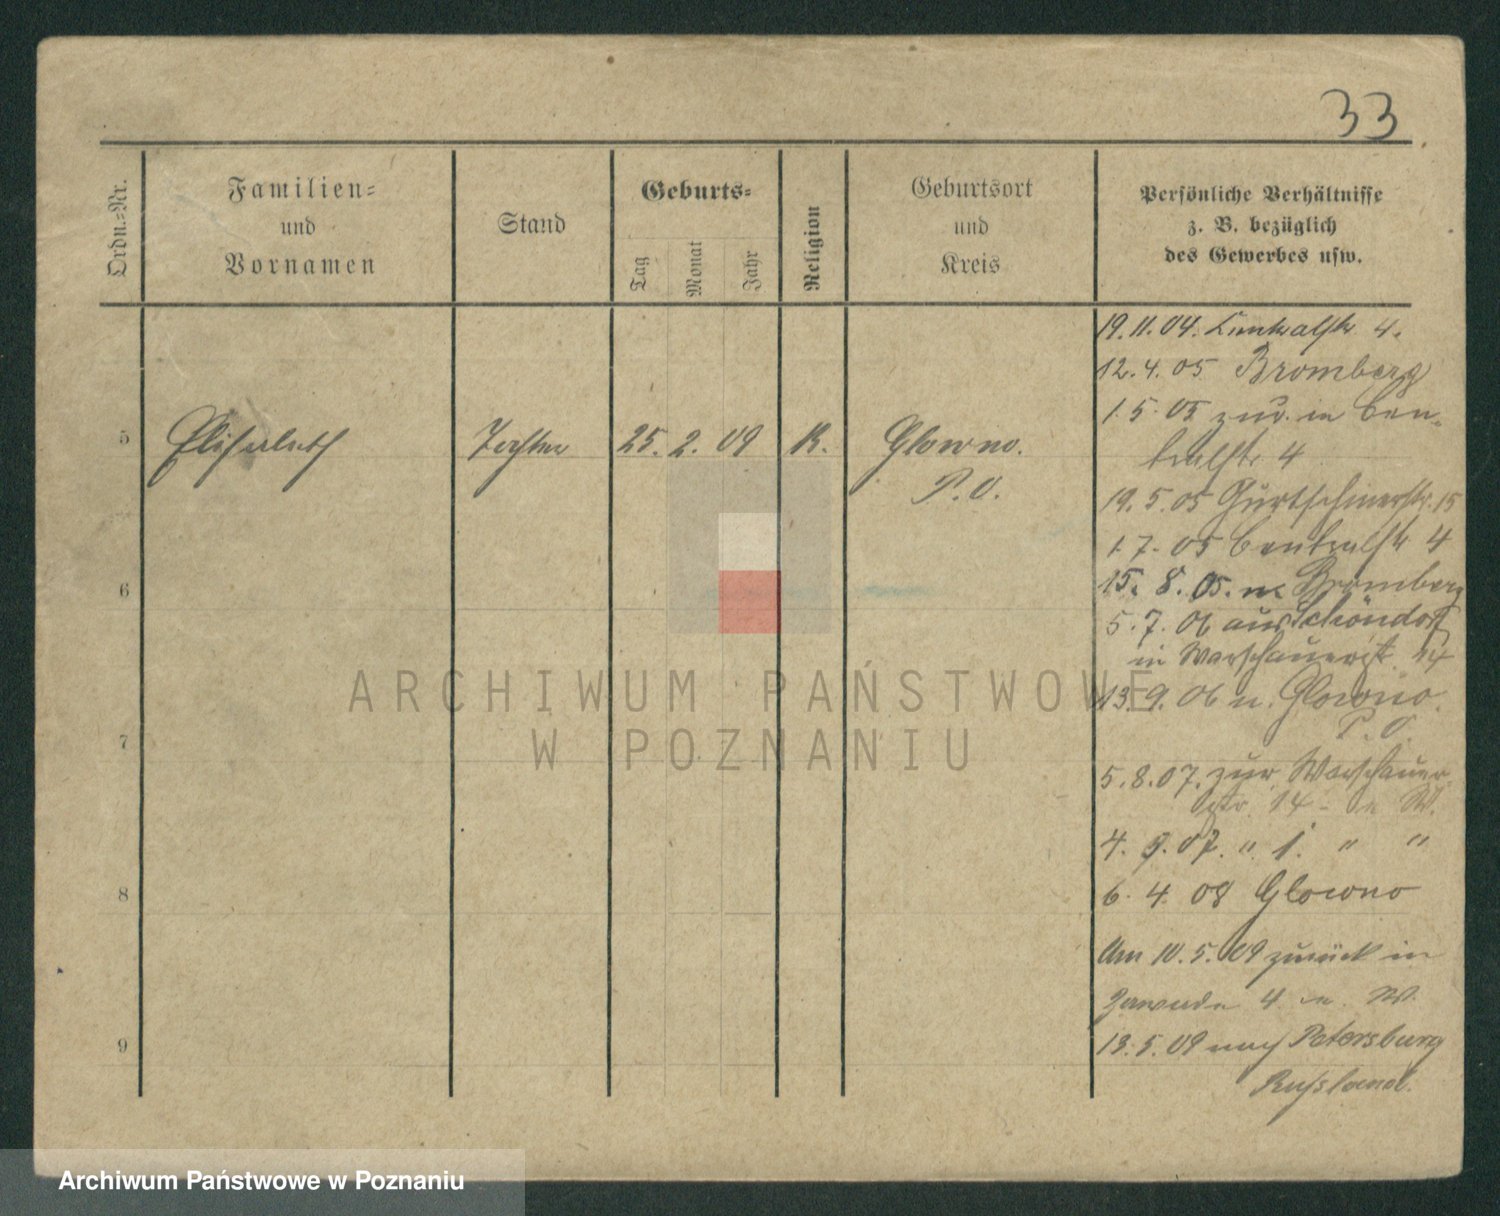 33
Ordn.=Nr.
Familien=
und
Vornamen
Stand
Geburts=
Tag
Monat
Jahr
Religion
Geburtsort
und
Kreis
Persönliche Verhältnisse
z. B. bezüglich
des Gewerbes usw.
19. 11. 04. Centralstr 4.
12. 4. 05 Bromberg
1. 5. 05 zur. in Cen-
tralstr 4
5 Elisabeth Tochter 25. 2. 09 K. Glowno.
P. O.
19. 5. 05 Gurtschinerstr. 15
1. 7. 05 Centralstr 4
6
15. 8. 05. n. Bromberg
5. 7. 06 aus Schöndorf
in Warschauerst. 14
13. 9. 06 n. Glowno.
P. O.
7
5. 8. 07. zur. Warschauer
str. 14 - W.
4. 9. 07. " 1. " "
8
6. 4. 08 Glowno
Am 10. 5. 09 zurück in
Zawade 4 W.
9
13. 5. 09 nach Petersburg
Russland.
ARCHIWUM PAŃSTWOWE
W POZNANIU
Archiwum Państwowe w Poznaniu